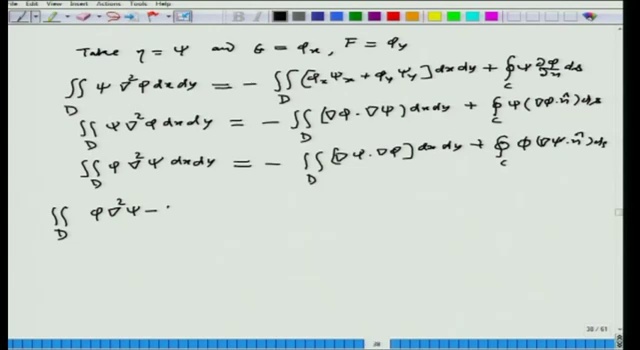 File Edit View Insert Actions Tools Help
Take η = ψ and G = φₓ, F = φᵧ
∬_D ψ ∇²φ dxdy = - ∬_D [φₓψₓ + φᵧψᵧ] dxdy + ∮_C ψ ∂φ/∂n ds
∬_D ψ ∇²φ dxdy = - ∬_D (∇φ · ∇ψ) dxdy + ∮_C ψ (∇φ · n̂) ds
∬_D φ ∇²ψ dxdy = - ∬_D [∇ψ · ∇φ] dxdy + ∮_C φ (∇ψ · n̂) ds
∬_D φ∇²ψ -